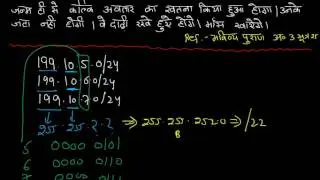 जन्म से मे कल्कि अवतार का खतना किया हुआ होगा। उनके
जटा नही होगी। वे दाढ़ी रखे हुऐ होंगे। मांस खायेंगे।
भविष्य पुराण
199.10.5.0/24
199.10.6.0/24
199.10.7.0/24
255.255.?.? ⇒ 255.255.252.0 ⇒ /22
B
5 0000 0101
6 0000 0110